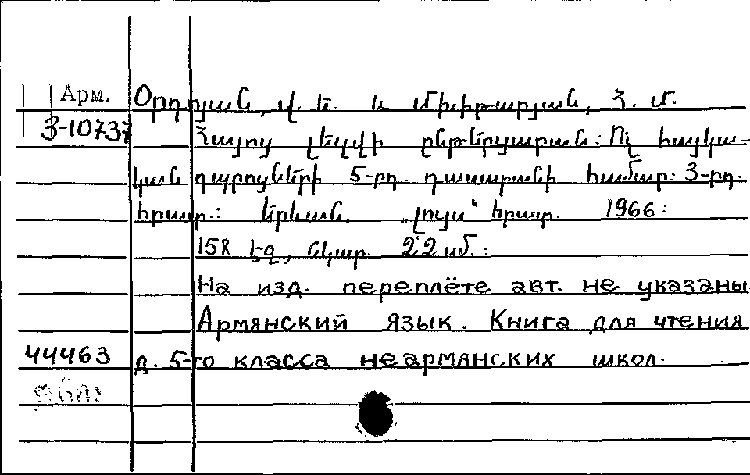 Арм. Օրդոյան, Վ. Ե. և Մխիթարյան, Հ. Մ.
3-10737 Հայոց լեզվի ընթերցարան: Ոչ հայկա-
կան դպրոցների 5-րդ դասարանի համար: 3-րդ.
հրատ.: Երևան. „Լույս“ հրատ. 1966:
158 էջ, նկար. 22 սմ.:
На изд. переплёте авт. не указаны
Армянский язык. Книга для чтения
44463 д. 5-го класса неармянских школ.